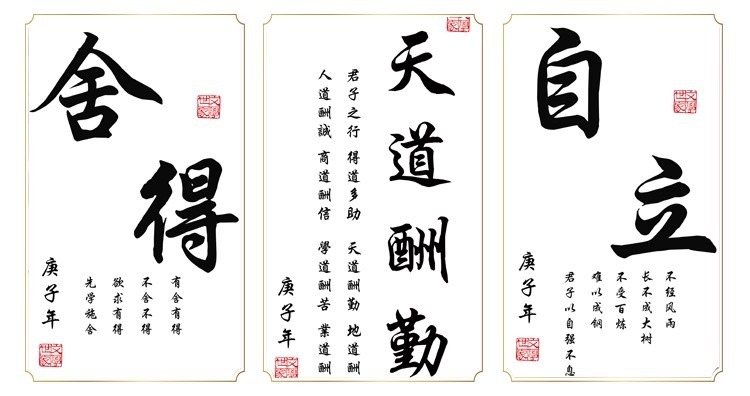 舍得
有舍有得
不舍不得
欲求有得
先学施舍
庚子年
天道酬勤
君子之行 得道多助 天道酬勤 地道酬
人道酬誠 商道酬信 學道酬苦 業道酬
庚子年
自立
不经风雨
长不成大树
不受百炼
难以成钢
君子以自强不息
庚子年